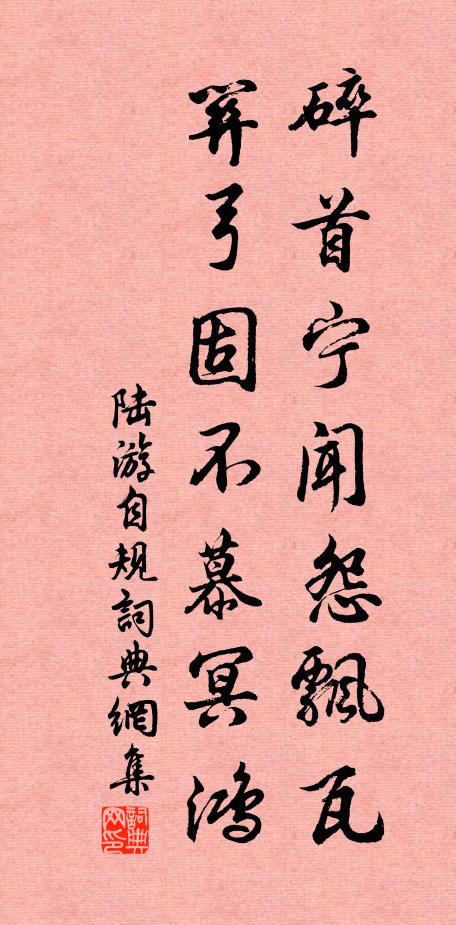 碎首宁闻怨飘瓦
关弓固不慕冥鸿
陆游自规詞典網集
詞典
网印